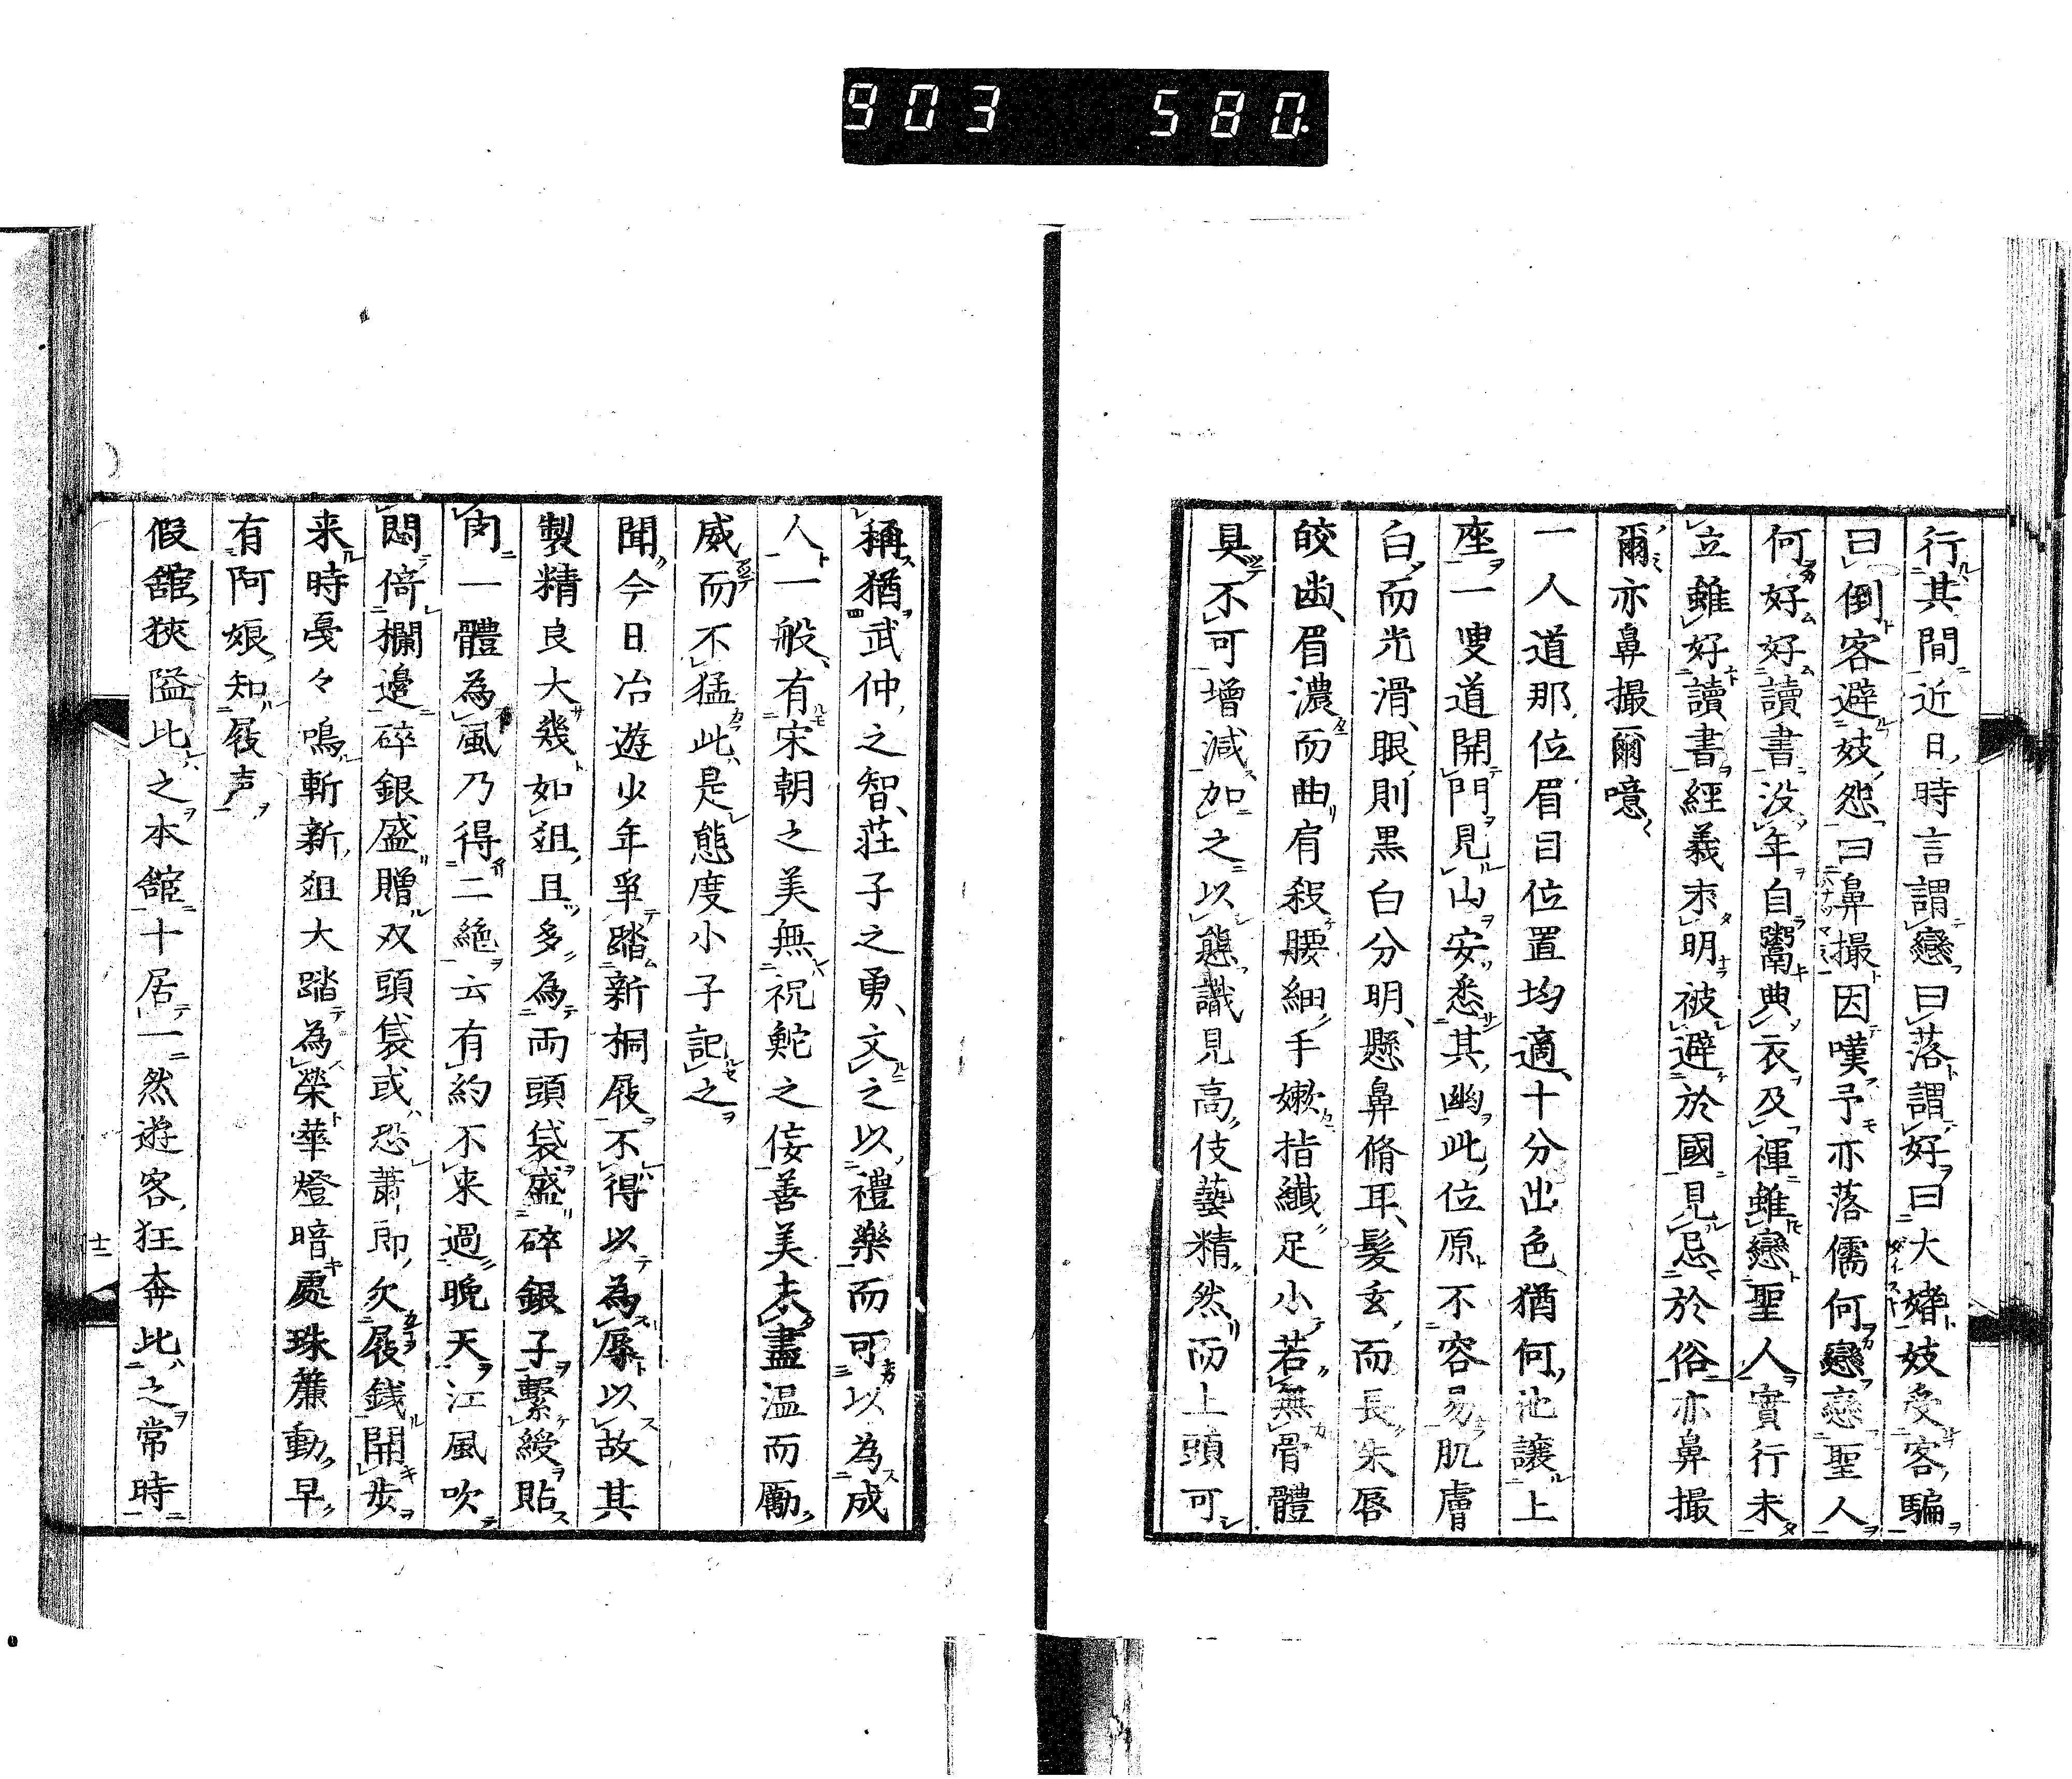 903 580.
行其間近日時言謂戀曰落謂好曰大媎妓受客騙
曰倒客避妓怨曰鼻撮因嘆予亦落儒何戀戀聖人
何好好讀書没年自鬻典衣及褌雖戀聖人實行未
立雖好讀書經義未明被避於國見忌於俗亦鼻撮
爾亦鼻撮爾噫
一人道那位眉目位置均適十分出色猶何池讓上
座一叟道開門見山安悉其幽此位原不容易肌膚
白而光滑眼則黒白分明懸鼻脩耳髪玄而長朱唇
皎歯眉濃而曲肩殺腰細手嫩指纎足小若無骨體
具不可增減加之以態識見高伎藝精然而上頭可
稱猶武仲之智莊子之勇文之以禮樂而可以為成
人一般有宋朝之美無祝鮀之侫善美夫盡温而厲
威而不猛此是態度小子記之
聞今日冶遊少年爭踏新桐屐不得以為辱以故其
製精良大幾如俎且多為両頭袋盛碎銀子繋綬貼
肉一體為風乃得二絶云有約不来過晩天江風吹
悶倚欄邊碎銀盛贈双頭袋或恐蕭郎欠屐銭開歩
来時戞々鳴斬新俎大踏為榮華燈暗處珠簾動早
有阿娘知屐声
假舘狹隘比之本舘十居一然遊客狂奔比之常時
十二